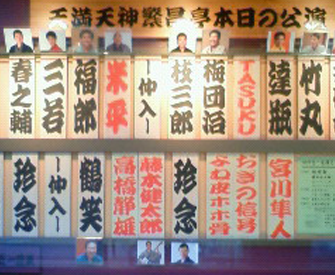 天満天神繁昌亭本日の公演
竹丸
達瓶
TASUKU
梅団治
枝三郎
―仲入―
米平
福郎
三若
春之輔
宮川隼人
おきの信号
よね皮ホホ骨
珍念
藤本健太郎
高橋静雄
鶴笑
―仲入―
珍念